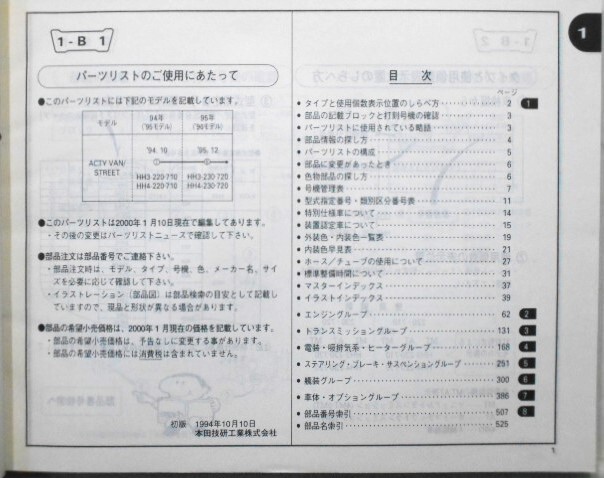 1-B 1
パーツリストのご使用にあたって
●このパーツリストには下記のモデルを記載しています。
モデル
94年
('95モデル)
95年
('96モデル)
ACTY VAN/
STREET
'94. 10
'95. 12
HH3-220-710
HH4-220-710
HH3-230-720
HH4-230-720
●このパーツリストは2000年1月10日現在で編集してあります。
・その後の変更はパーツリストニュースで確認して下さい。
●部品注文は部品番号でご連絡下さい。
・部品注文時は、モデル、タイプ、号機、色、メーカー名、サイ
ズを必要に応じて確認して下さい。
・イラストレーション(部品図)は部品検索の目安として記載し
ていますので、現品と形状が異なる場合があります。
●部品の希望小売価格は、2000年1月現在の価格を記載しています。
・部品の希望小売価格は、予告なしに変更する事があります。
・部品の希望小売価格には消費税は含まれていません。
初版 1994年10月10日
本田技研工業株式会社
目 次
ページ
・タイプと使用個数表示位置のしらべ方 2 1
・部品の記載ブロックと打刻号機の確認 3
・パーツリストに使用されている略語 3
・部品情報の探し方 4
・パーツリストの構成 5
・部品に変更があったとき 6
・色物部品の探し方 6
・号機管理表 7
・型式指定番号・類別区分番号表 11
・特別仕様車について 14
・装置認定車について 15
・外装色・内装色一覧表 19
・内装色早見表 21
・ホース/チューブの使用について 27
・標準整備時間について 31
・マスターインデックス 37
・イラストインデックス 39
・エンジングループ 62 2
・トランスミッショングループ 131 3
・電装・吸排気系・ヒーターグループ 168 4
・ステアリング・ブレーキ・サスペンショングループ 251 5
・艤装グループ 300 6
・車体・オプショングループ 386 7
・部品番号索引 507 8
・部品名索引 525
1
1